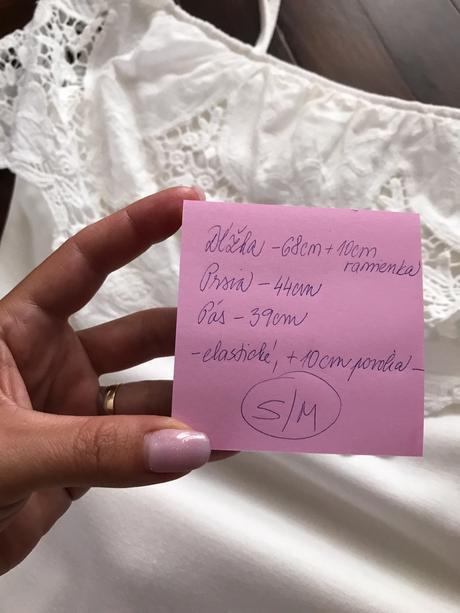 Dĺžka - 68cm + 10cm
ramienka
Prsia - 44cm
Pás - 39cm
- elastické, + 10cm povolia -
S/M